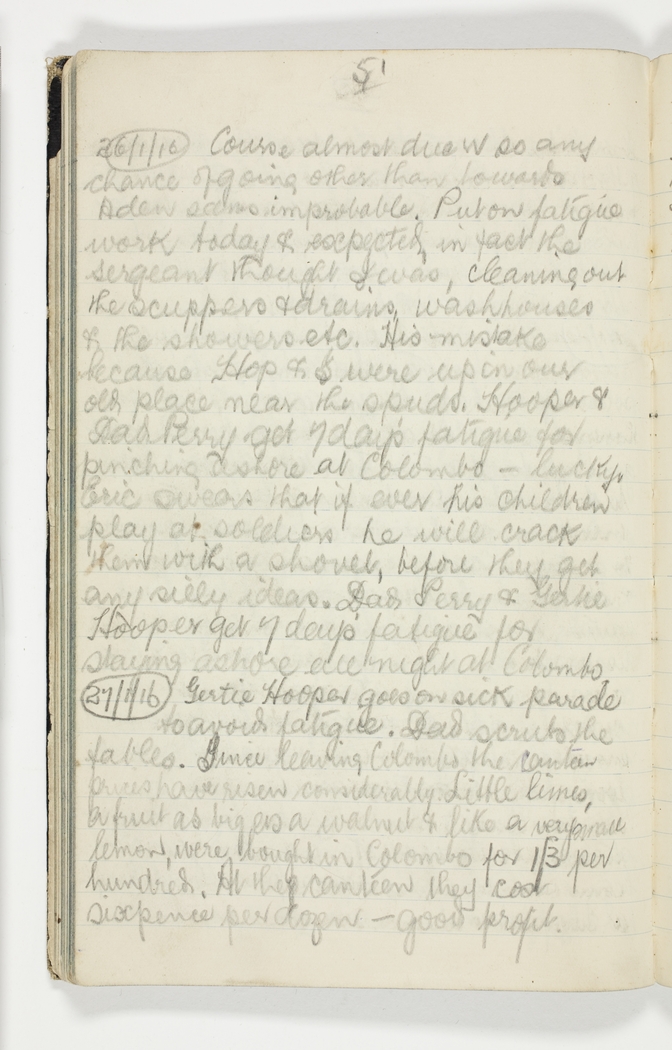 51
26/1/16 Course almost due W so any
chance of going other than towards
Aden seems improbable. Put on fatigue
work today & expected, in fact the
sergeant thought I was, cleaning out
the scuppers & drains, washhouses
& the showers etc. His mistake
because Hop & I were up in our
old place near the spuds. Hooper &
Dad Perry get 7 days fatigue for
pinching ashore at Colombo – lucky.
Eric swears that if ever his children
play at soldiers he will crack
them with a shovel, before they get
any silly ideas. Dad Perry & Gertie
Hooper get 7 days' fatigue for
staying ashore all night at Colombo
27/1/16 Gertie Hooper goes on sick parade
to avoid fatigue. Dad scrubs the
tables. Since leaving Colombo the canteen
prices have risen considerably. Little limes,
a fruit as big as a walnut & like a very small
lemon, were bought in Colombo for 1/3 per
hundred. At the canteen they cost
sixpence per dozen – good profit.